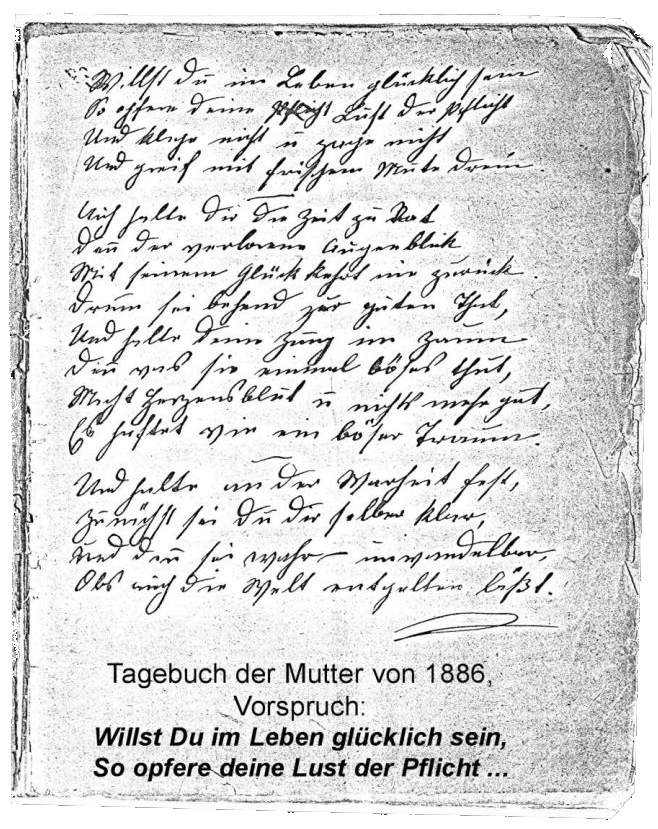 Willst Du im Leben glücklich sein
So opfere deine Pflicht Lust der Pflicht
Und klage nicht u zage nicht
Und greif mit frischem Mute drein.
Auch halte Dir die Zeit zu Rat
Den der verlorene Augenblick
Mit seinem Glück kehrt nie zurück.
Drum sei behend zur guten That,
Und halte Deine Zung im Zaum
Den was sie einmal böses thut,
Macht Herzensblut u nichts mehr gut,
Es haftet wie ein böser Traum.
Und halte an der Warheit fest,
Zunächst sei Du dir selber klar,
Und dan sei wahr unwandelbar,
Obs auch die Welt entgelten läßt.
Tagebuch der Mutter von 1886,
Vorspruch:
Willst Du im Leben glücklich sein,
So opfere deine Lust der Pflicht ...